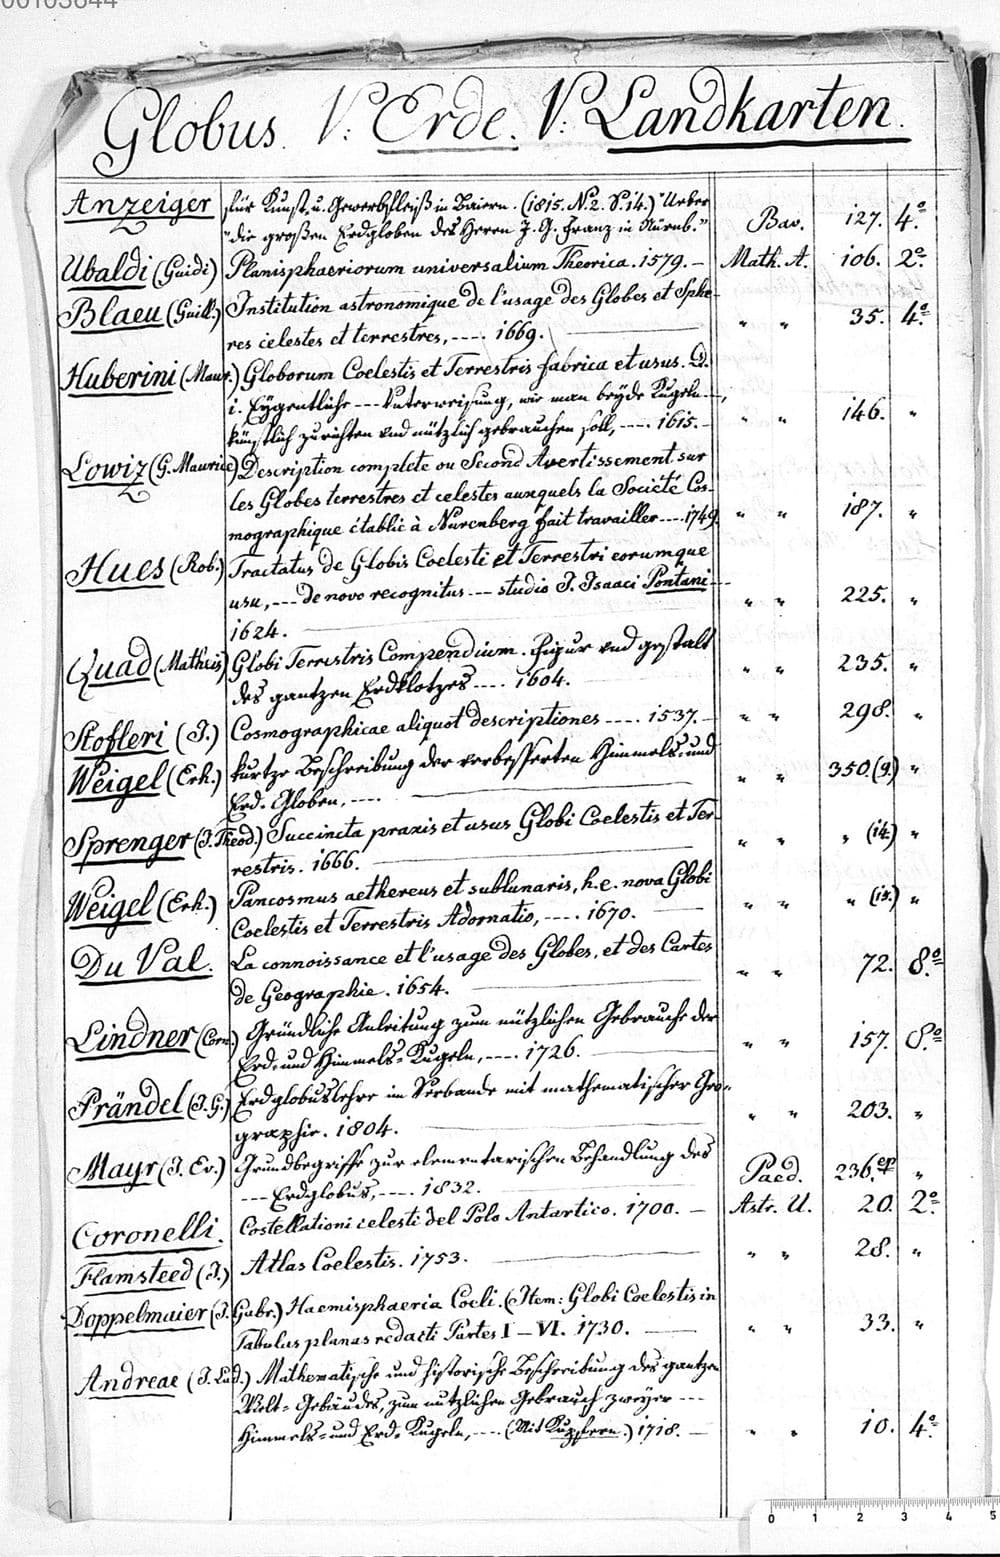 00103644
Globus. V: Erde. V: Landkarten.
Anzeiger für Kunst u. Gewerbfleiß in Baiern. (1815. N. 2. S. 14.) "Ueber
"die großen Erdgloben des Herrn J. G. Franz in Nürnb." Bav. 127. 4.º
Ubaldi (Guidi) Planisphaeriorum universalium Theorica. 1579. — Math. A. 106. 2.º
Blaeu (Guill.) Institution astronomique de l'usage des Globes et Sphe-
res celestes et terrestres, ---- 1669. " " 35. 4.º
Huberini (Maur.) Globorum Coelestis et Terrestris fabrica et usus. D.
i. Eÿgentliche --- Unterweisung, wie man beÿde Kugeln ---,
künstlich zurichten vnd nützlich gebrauchen soll, ---- 1615. — " " 146. "
Lowiz (G. Maurice) Description complete ou Second Avertissement sur
les Globes terrestres et celestes auxquels la Société Cos-
mographique établie à Nurenberg fait travailler ---- 1749. " " 187. "
Hues (Rob.) Tractatus de Globis Coelesti et Terrestri eorumque
usu, --- de novo recognitus --- studio J. Isaaci Pontani ---
1624. " " 225. "
Quad (Matheis) Globi Terrestris Compendium. Figur vnd gestalt
des gantzen Erdklotzes ---- 1604. " " 235. "
Stofleri (J.) Cosmographicae aliquot descriptiones ---- 1537. — " " 298. "
Weigel (Erh.) kurtze Beschreibung der verbesserten Himmels- und
Erd- Globen, ---- " " 350. (9.) "
Sprenger (J. Theod.) Succincta praxis et usus Globi Coelestis et Ter-
restris. 1666. " " " (14.) "
Weigel (Erh.) Pancosmus aethereus et sublunaris, h. e. nova Globi
Coelestis et Terrestris Adornatio, ---- 1670. " " " (15.) "
Du Val. La connoissance et l'usage des Globes, et des Cartes
de Geographie. 1654. " " 72. 8.º
Lindner (Corn.) Gründliche Anleitung zum nützlichen Gebrauche der
Erd- und Himmels-Kugeln, ---- 1726. " " 157. 8.º
Prändel (J. G.) Erdglobuslehre im Verbande mit mathematischer Geo-
graphie. 1804. " " 203. "
Mayr (J. Ev.) Grundbegriffe zur elementarischen Behandlung des
--- Erdglobus, ---- 1832. Paed. 236. "
Coronelli. Costellationi celesti del Polo Antartico. 1700. — Astr. U. 20. 2.º
Flamsteed (J.) Atlas Coelestis. 1753. " " 28. "
Doppelmaier (J. Gabr.) Haemisphaeria Coeli. (Item: Globi Coelestis in
Tabulas planas redacti Partes I – VI. 1730. " " 33. "
Andreae (J. Lud.) Mathematische und historische Beschreibung des gantzen
Welt-Gebäudes, zum nützlichen Gebrauch zweÿer ---
Himmels- und Erd-Kugeln, ---- (Mit Kupfern.) 1718. — " " 10. 4.º
0 1 2 3 4 5